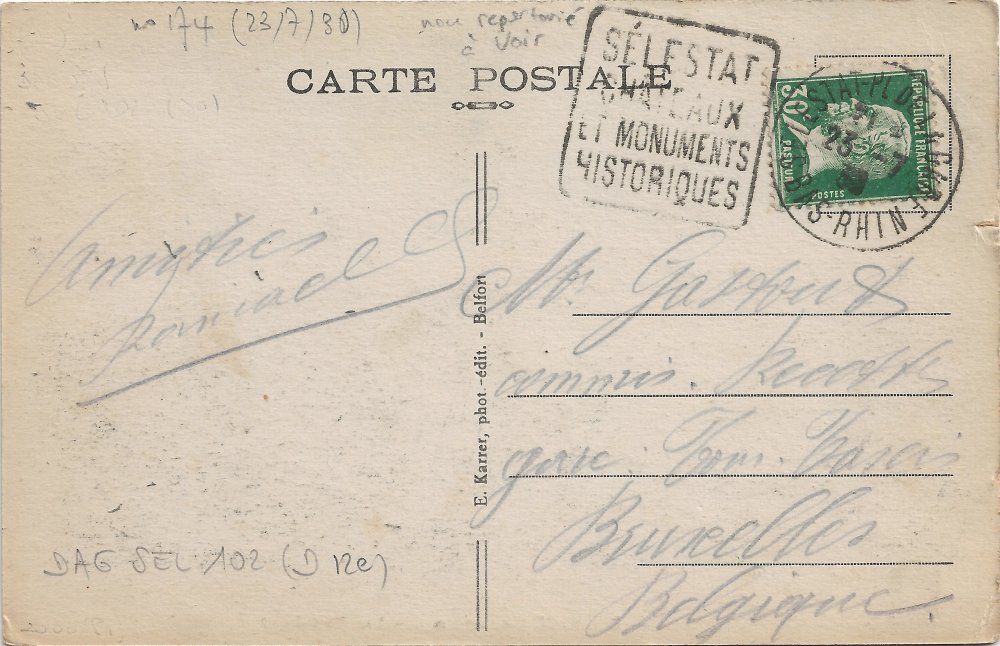 no 174 (23/7/30)
non repertorié
à voir
CARTE POSTALE
SÉLESTAT
CHATEAUX
ET MONUMENTS
HISTORIQUES
RÉPUBLIQUE FRANÇAISE
30
PASTEUR
POSTES
23 -7
BAS-RHIN
Amitiés
E. Karrer, phot.-édit. - Belfort
Mr.
commis.
gare.
Bruxelles
Belgique
DAG SEL 102 (D 12e)